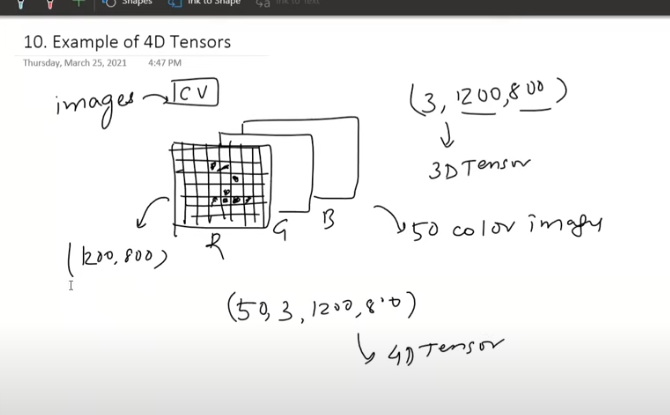 Shapes
Ink to Shape
Ink to Text
10. Example of 4D Tensors
Thursday, March 25, 2021 4:47 PM
images → CV
(3, 1200, 800)
3D Tensor
R G B
(1200, 800)
50 color images
(50, 3, 1200, 800)
4D Tensor